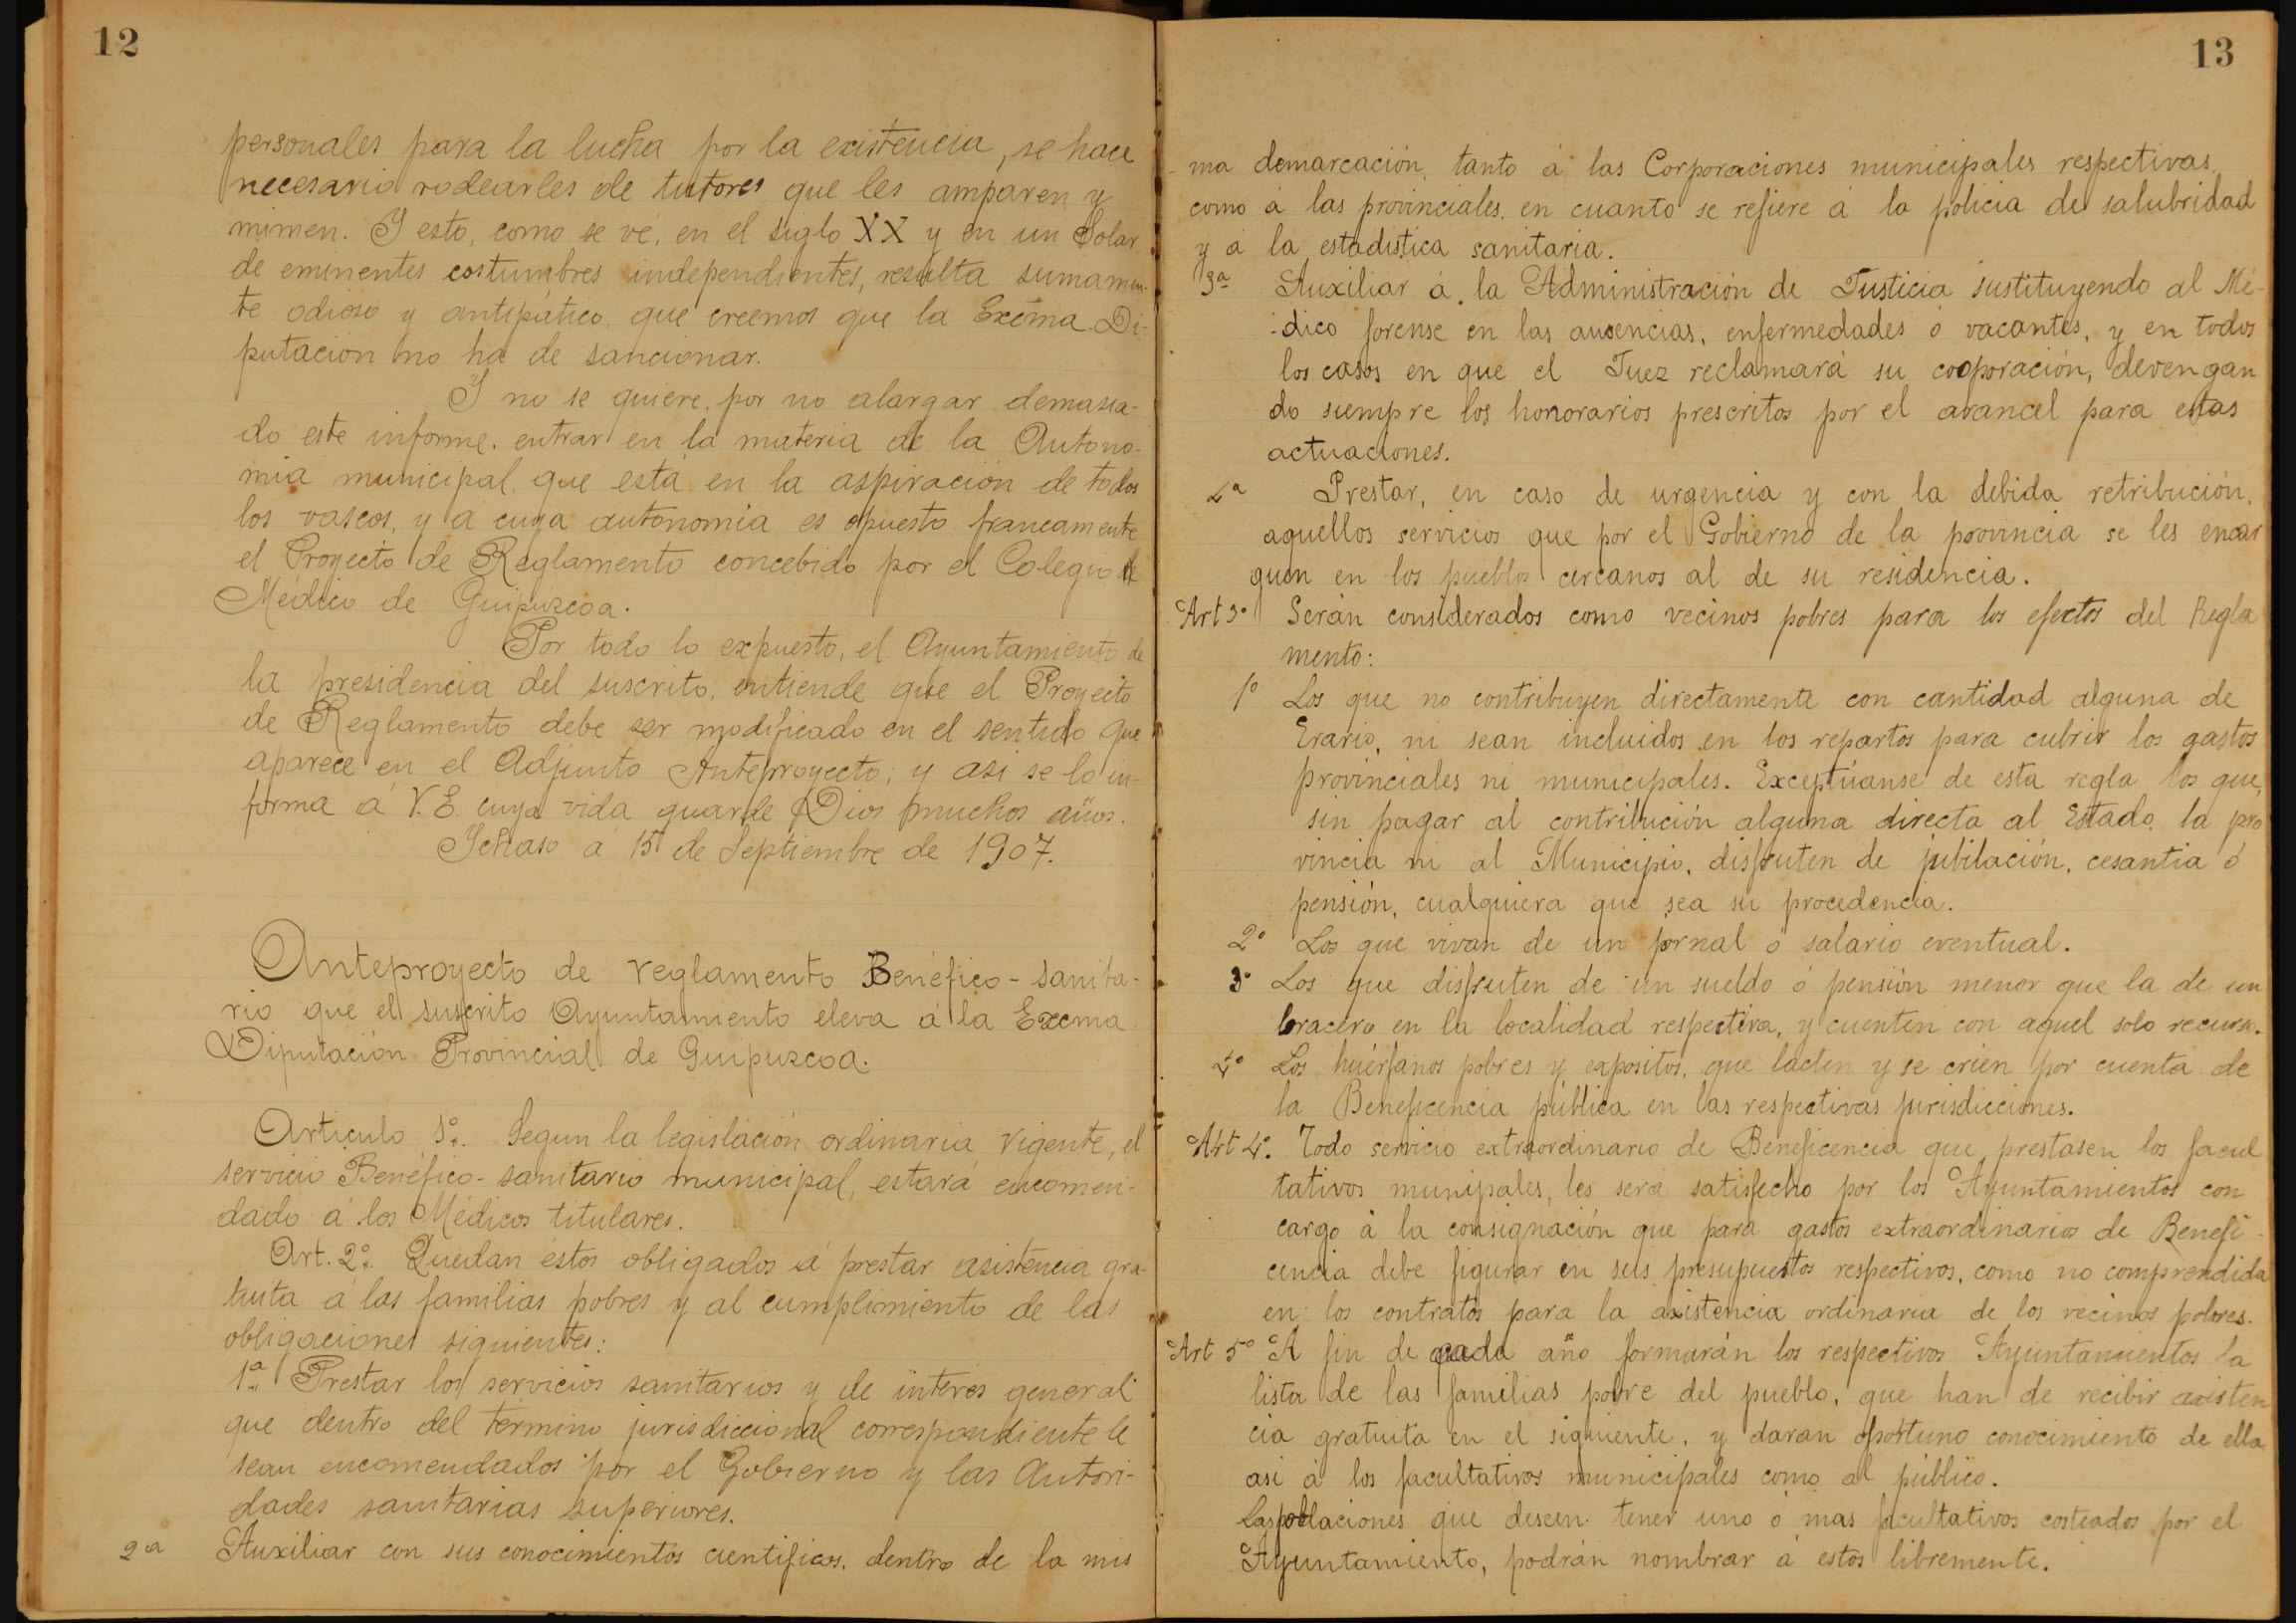 12
personales para la lucha por la existencia, se hace
necesario rodearles de tutores que les amparen y
mimen. Y esto, como se vé, en el siglo XX y en un Solar
de eminentes costumbres independientes, resulta sumamen-
te odioso y antipático, que creemos que la Excma. Di-
putacion no ha de sancionar.
Y no se quiere, por no alargar demasia-
do este informe, entrar en la materia de la Autono-
mia municipal, que está en la aspiración de todos
los vascos, y á cuya autonomia es opuesto francamente
el Proyecto de Reglamento concebido por el Colegio de
Médico de Guipuzcoa.
Por todo lo expuesto, el Ayuntamiento de
la presidencia del suscrito, entiende que el Proyecto
de Reglamento debe ser modificado en el sentido que
aparece en el Adjunto Anteproyecto; y asi se lo in-
forma á V.E. cuya vida guarde Dios muchos años.
Ichaso á 15 de Septiembre de 1907.
Anteproyecto de reglamento Benéfico-sanita-
rio que el suscrito Ayuntamiento eleva á la Excma.
Diputación Provincial de Guipuzcoa.
Articulo 1º. Segun la legislación ordinaria vigente, el
servicio Benéfico-sanitario municipal, estará encomen-
dado á los Médicos titulares.
Art. 2º. Quedan éstos obligados á prestar asistencia gra-
tuita á las familias pobres y al cumplimiento de las
obligaciones siguientes:
1ª Prestar los servicios sanitarios y de interés general
que dentro del término jurisdiccional correspondiente le
sean encomendados por el Gobierno y las Autori-
dades sanitarias superiores.
2ª Auxiliar con sus conocimientos cientificos, dentro de la mis
13
ma demarcación, tanto á las Corporaciones municipales respectivas,
como á las provinciales, en cuanto se refiere á la policia de salubridad
y á la estadistica sanitaria.
3ª Auxiliar á la Administración de Justicia sustituyendo al Mé-
dico forense en las ausencias, enfermedades ó vacantes, y en todos
los casos en que el Juez reclamará su cooporación, devengan
do siempre los honorarios prescritos por el arancel para estas
actuaciones.
4ª Prestar, en caso de urgencia y con la debida retribución,
aquellos servicios que por el Gobierno de la provincia se les encar
guen en los pueblos cercanos al de su residencia.
Art 3º Serán considerados como vecinos pobres para los efectos del Regla
mento:
1º Los que no contribuyen directamente con cantidad alguna de
Erario, ni sean incluidos en los repartos para cubrir los gastos
provinciales ni municipales. Exceptúanse de esta regla los que,
sin pagar al contribución alguna directa al Estado, la pro
vincia ni al Municipio, disfruten de jubilación, cesantia ó
pensión, cualquiera que sea su procedencia.
2º Los que vivan de un jornal ó salario eventual.
3º Los que disfruten de un sueldo ó pensión menor que la de un
bracero en la localidad respectiva, y cuenten con aquel solo recurso.
4º Los huérfanos pobres y expositos, que lacten y se crien por cuenta de
la Beneficencia pública en las respectivas jurisdicciones.
Art 4º. Todo servicio extraordinario de Beneficencia que prestasen los facul
tativos munipales, les será satisfecho por los Ayuntamientos con
cargo á la consignación que para gastos extraordinarios de Benefi-
cencia debe figurar en sus presupuestos respectivos, como no comprendida
en los contratos para la axistencia ordinaria de los vecinos pobres.
Art 5º A fin de cada año formarán los respectivos Ayuntamientos la
lista de las familias pobre del pueblo, que han de recibir axisten
cia gratuita en el siguiente, y daran oportuno conocimiento de ella
asi á los facultativos municipales como al público.
Las poblaciones que deseen tener uno ó mas facultativos costeados por el
Ayuntamiento, podrán nombrar á estos libremente.